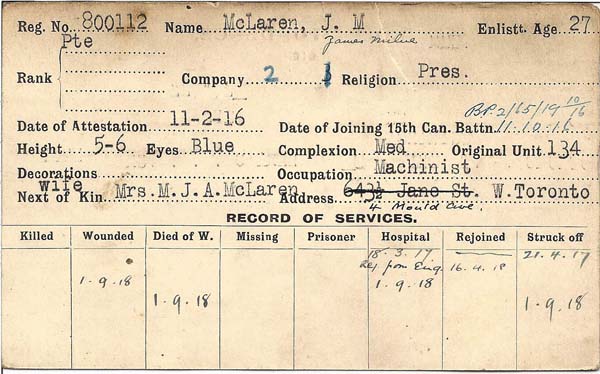 Reg. No. 800112 Name McLaren, J. M Enlistt. Age 27
James Milne
Pte
Rank Company 2 3 Religion Pres.
B.P. 2/15/19 10/16
Date of Attestation 11-2-16 Date of Joining 15th Can. Battn. 11.10.16
Height 5-6 Eyes Blue Complexion Med Original Unit 134
Decorations Occupation Machinist
Wife
Next of Kin Mrs. M.J.A.McLaren Address 643½ Jane St. W.Toronto
4 Mould Ave.
RECORD OF SERVICES.
Killed Wounded Died of W. Missing Prisoner Hospital Rejoined Struck off
18.3.17 21.4.17
Rej from Eng. 16.4.18
1.9.18 1.9.18
1.9.18 1.9.18